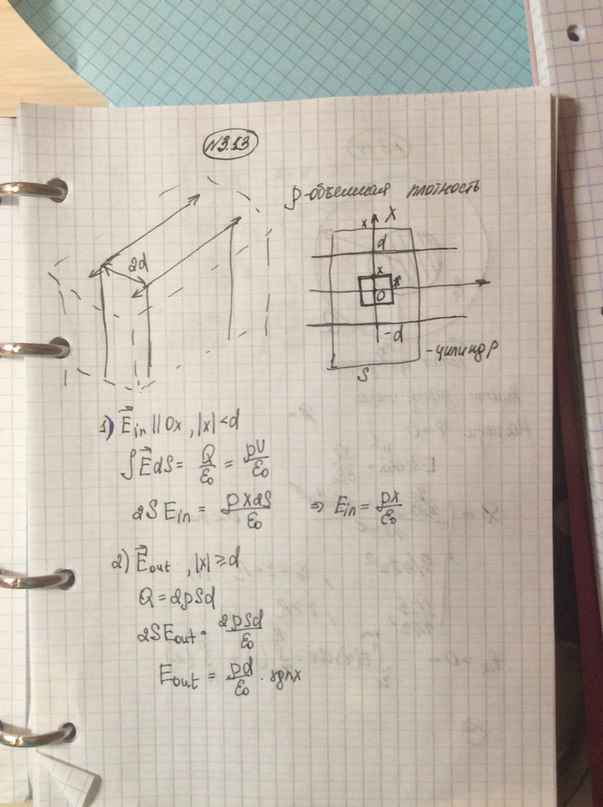 N3.13
ρ-объемная плотность
x X
d
2d
x
x
0
-d
-цилиндр
S
1) E⃗in || Ox, |x|<d
∫E⃗dS = Q/ε₀ = ρV/ε₀
2SEin = ρx2S/ε₀ ⇒ Ein = ρx/ε₀
2) E⃗out, |x|≥d
Q = 2ρSd
2SEout = 2ρSd/ε₀
Eout = ρd/ε₀ · sgnx